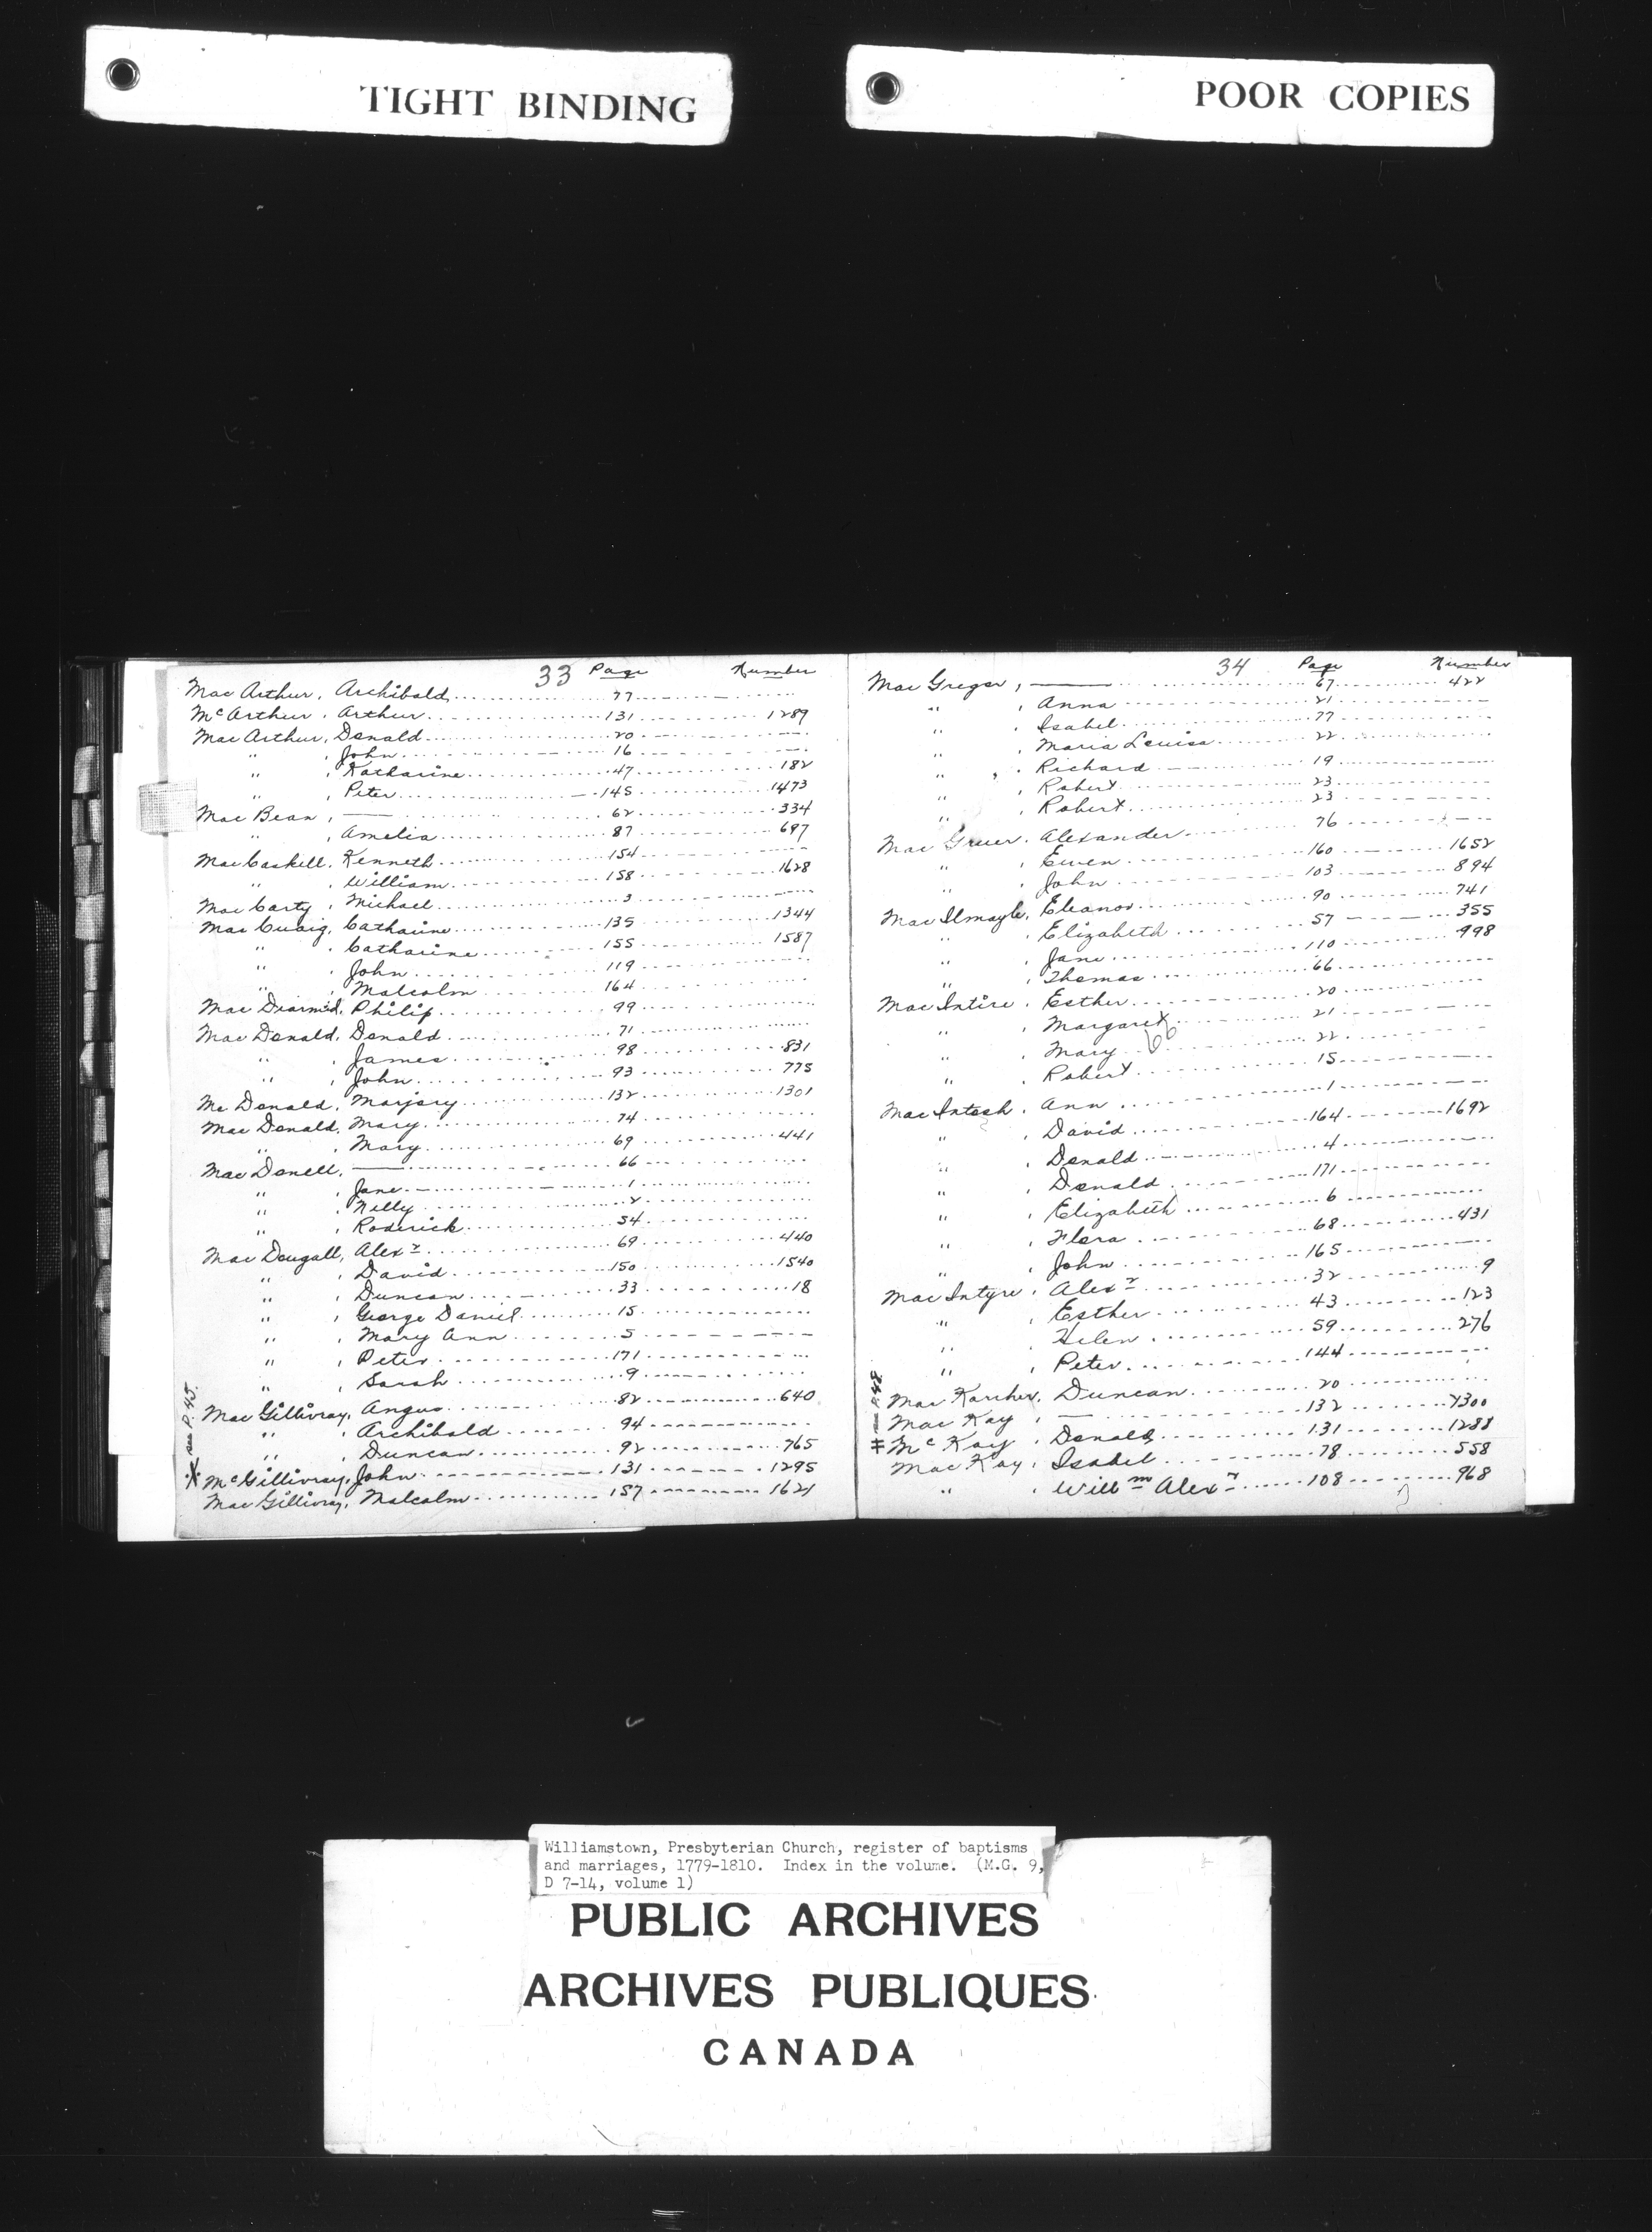 TIGHT BINDING
POOR COPIES
33 Page Number
Mac Arthur, Archibald 77
Mc Arthur, Arthur 131 1289
Mac Arthur, Donald 20
" , John 16
" , Katharine 47 182
" , Peter 145 1473
Mac Bean, — 62 334
" , Amelia 87 697
Mac Caskell, Kenneth 154
" , William 158 1628
Mac Carty, Michael 3
Mac Cuaig, Catharine 135 1344
" , Catharine 155 1587
" , John 119
" , Malcolm 164
Mac Diarmid, Philip 99
Mac Donald, Donald 71
" , James 98 831
" , John 93 775
Mc Donald, Marjory 132 1301
Mac Donald, Mary 74
" , Mary 69 441
Mac Donell, — 66
" , Jane 1
" , Nelly 2
" , Roderick 54
Mac Dougall, Alexr 69 440
" , David 150 1540
" , Duncan 33 18
" , George Daniel 15
" , Mary Ann 5
" , Peter 171
" , Sarah 9
Mac Gillivray, Angus 82 640
" , Archibald 94
" , Duncan 92 765
Mc Gillivray, John 131 1295
Mac Gillivray, Malcolm 157 1621
* see P. 45.
34 Page Number
Mac Gregor, — 67 422
" , Anna 21
" , Isabel 77
" , Maria Louisa 22
" , Richard 19
" , Robert 23
" , Robert 23
Mac Gruer, Alexander 76
" , Ewen 160 1652
" , John 103 894
Mac Ilmoyle, Eleanor 90 741
" , Elizabeth 57 355
" , Jane 110 998
" , Thomas 66
Mac Intire, Esther 20
" , Margaret 21
" , Mary 22
" , Robert 15
Mac Intosh, Ann 1
" , David 164 1692
" , Donald 4
" , Donald 171
" , Elizabeth 6
" , Flora 68 431
" , John 165
Mac Intyre, Alexr 32 9
" , Esther 43 123
" , Helen 59 276
" , Peter 144
Mac Karcher, Duncan 20
Mac Kay, — 132 1300
Mc Kay, Donald 131 1288
Mac Kay, Isabel 78 558
" , Willm Alexr 108 968
# see P. 48
Williamstown, Presbyterian Church, register of baptisms
and marriages, 1779-1810. Index in the volume. (M.G. 9,
D 7-14, volume 1)
PUBLIC ARCHIVES
ARCHIVES PUBLIQUES
CANADA